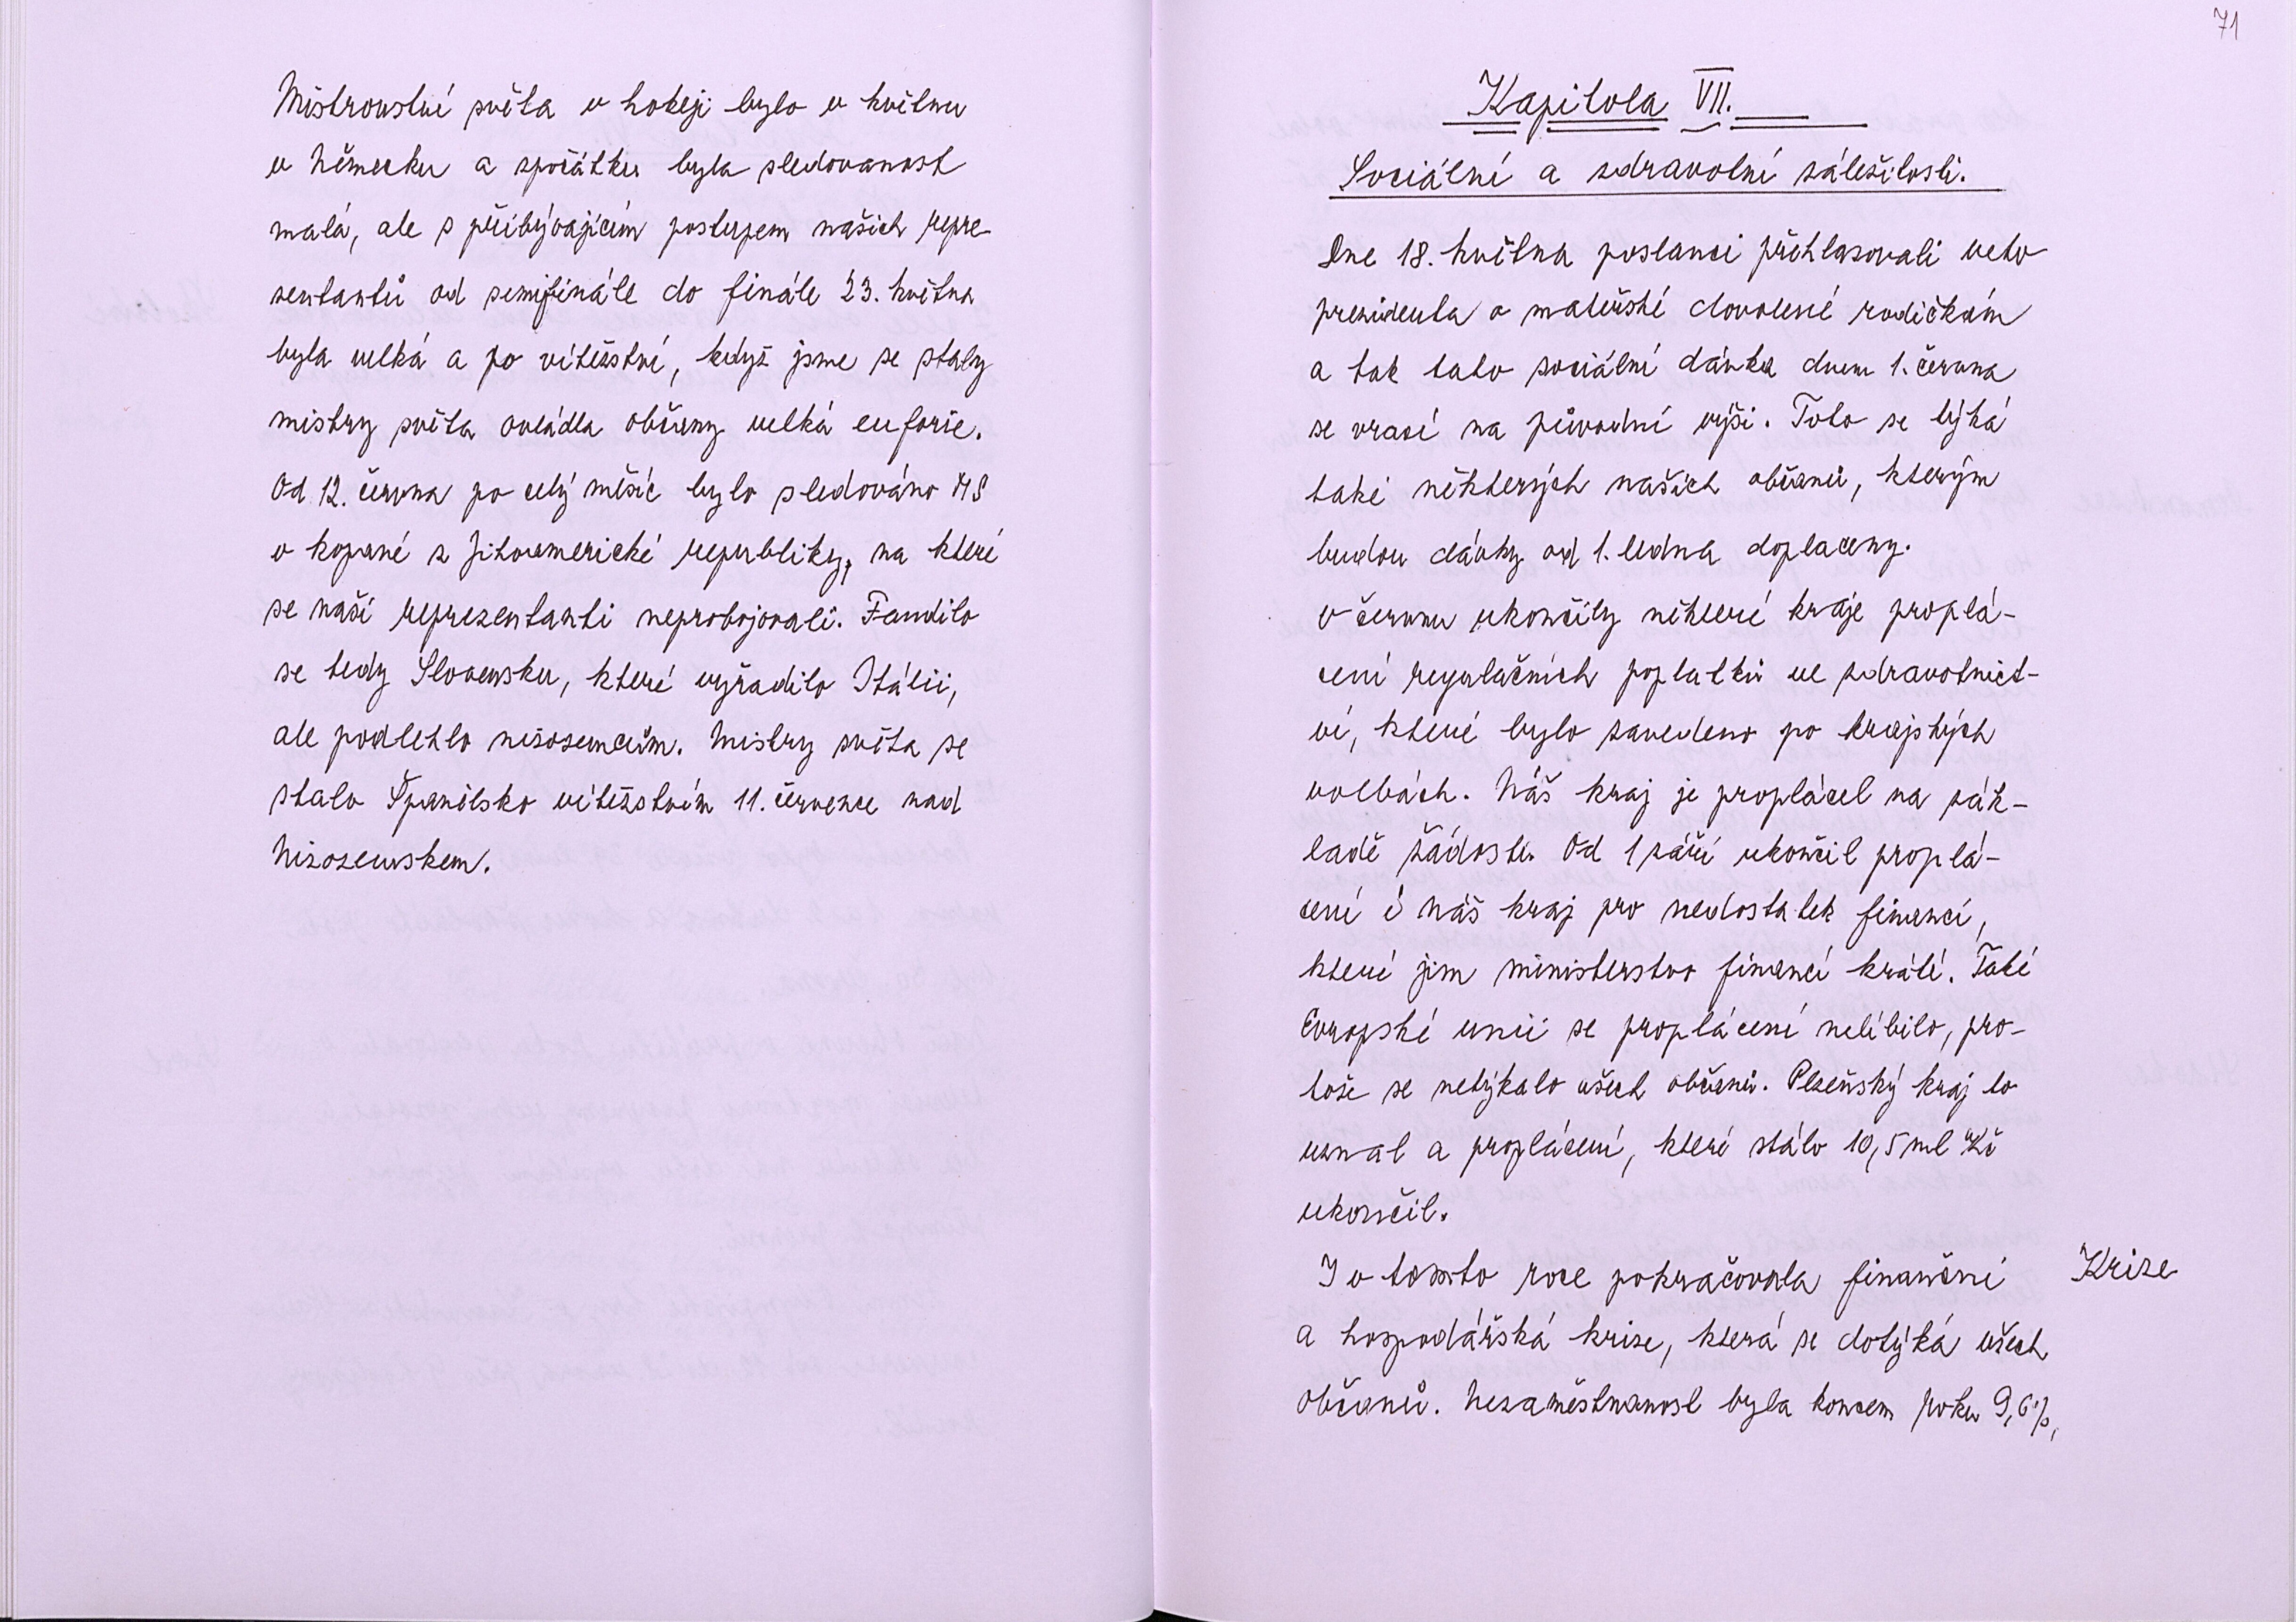 Mistrovství světa v hokeji bylo v květnu
v Německu a zpočátku byla sledovanost
malá, ale s přibývajícím postupem našich repre-
sentantů od semifinále do finále 23. května
byla velká a po vítězství, když jsme se staly
mistry světa ovládla občany velká euforie.
Od 12. června po celý měsíc bylo sledováno MS
v kopané z Jihoamerické republiky, na které
se naši reprezentanti neprobojovali. Fandilo
se tedy Slovensku, které vyřadilo Itálii,
ale podlehlo nizozemcům. Mistry světa se
stalo Španělsko vítězstvím 11. července nad
Nizozemskem.
71
Kapitola VII.
Sociální a zdravotní záležitosti.
Dne 18. května poslanci přehlasovali veto
prezidenta o mateřské dovolené rodičkám
a tak tato sociální dávka dnem 1. června
se vrací na původní výši. Toto se týká
také některých našich občanů, kterým
budou dávky od 1. ledna doplaceny.
V červnu ukončily některé kraje proplá-
cení regulačních poplatků ve zdravotnict-
ví, které bylo zavedeno po krajských
volbách. Náš kraj je proplácel na zák-
ladě žádosti. Od 1 září ukončil proplá-
cení i náš kraj pro nedostatek financí,
které jim ministerstvo financí krátí. Také
Evropské unii se proplácení nelíbilo, pro-
tože se netýkalo všech občanů. Plzeňský kraj to
uznal a proplácení, které stálo 10,5 ml Kč
ukončil.
I v tomto roce pokračovala finanční
Krize
a hospodářská krize, která se dotýká všech
občanů. Nezaměstnanost byla koncem roku 9,6%,